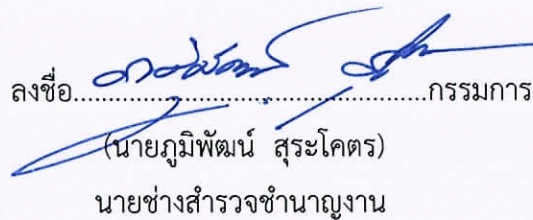 ลงชื่อ....................................................กรรมการ
(นายภูมิพัฒน์ สุระโคตร)
นายช่างสำรวจชำนาญงาน